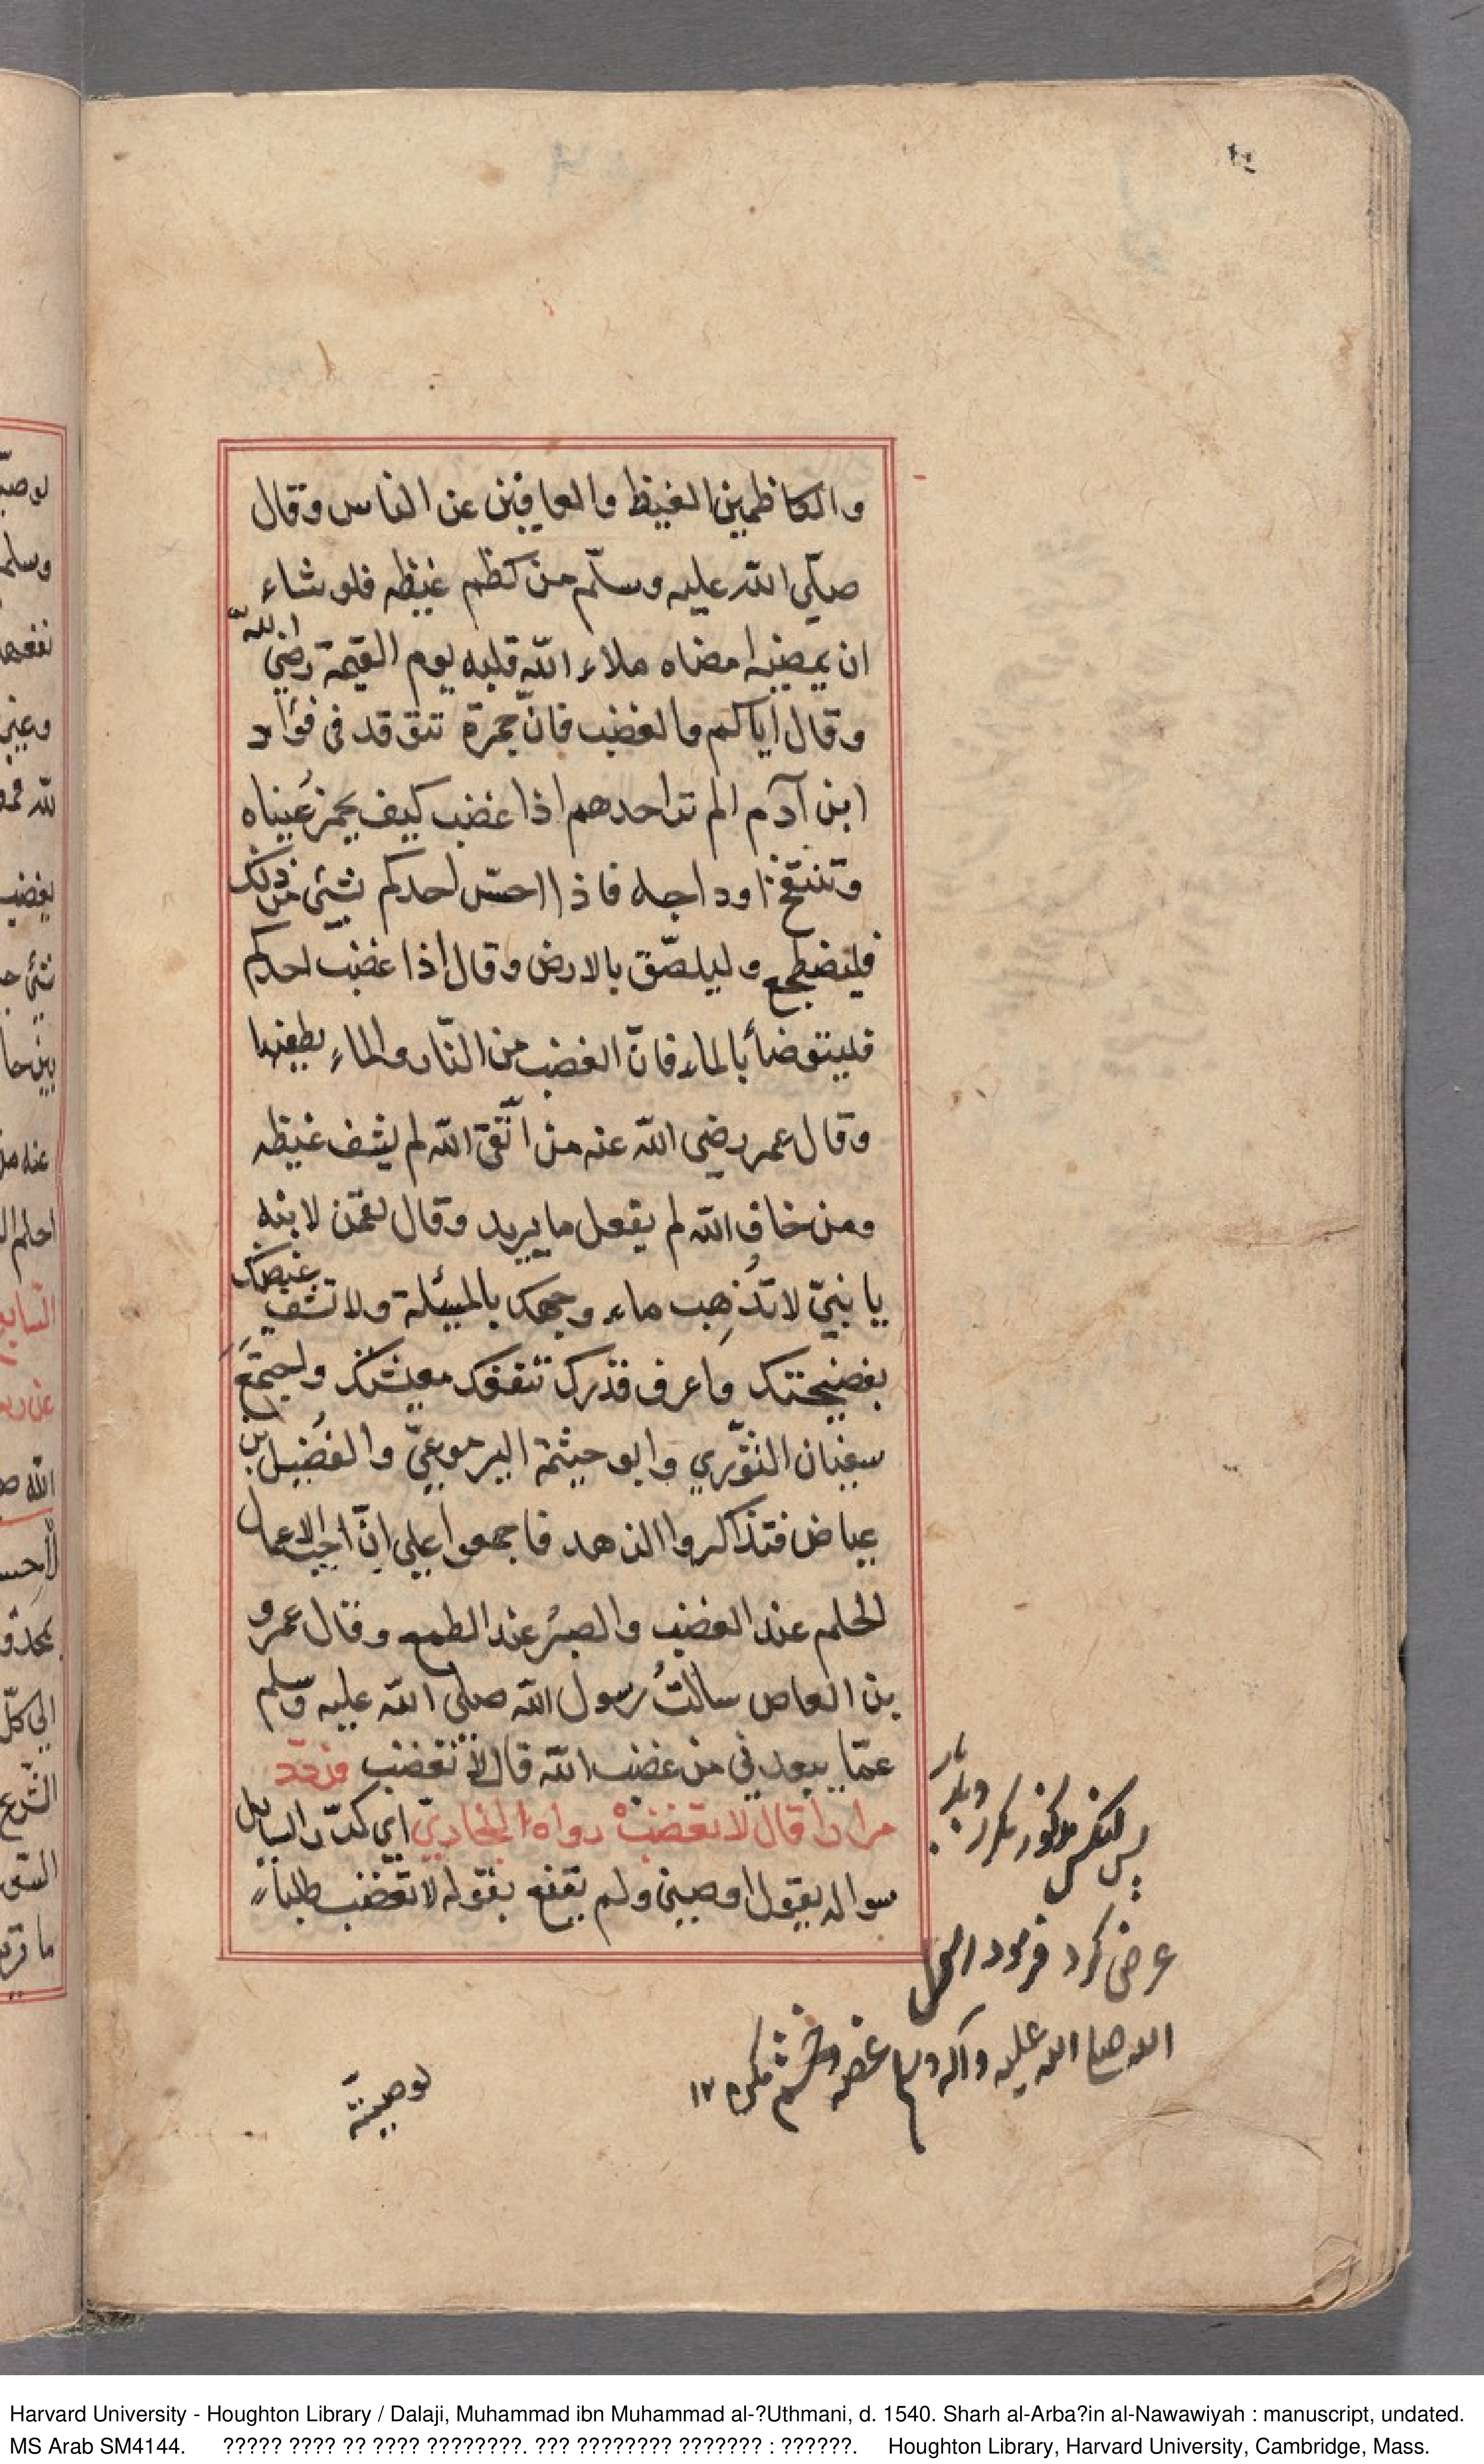 والكاظمين الغيظ والعافين عن الناس وقال
صلّي الله عليه وسلّم من كظم غيظه فلو شاء
ان يمضيه امضاه ملاء الله قلبه يوم القيمة رضي الله
وقال اياكم والغضب فانّ جمرة تتوقد في فؤاد
ابن آدم الم تر احدهم اذا غضب كيف يحمر عيناه
وتنتفخ اوداجه فاذا احسّ احدكم بشئ من ذلك
فليضطجع وليلصّق بالارض وقال اذا غضب احدكم
فليتوضأ بالماء فانّ الغضب من النّار والماء يطفئها
وقال عمر رضي الله عنه من اتّقى الله لم يشف غيظه
ومن خاف الله لم يفعل ما يريد وقال لقمن لابنه
يا بنيّ لا تُذهِب ماء وجهك بالمسئلة ولا تشف غيضك
بفضيحتك واعرف قدرك تنفعك معيشتك واجتمع
سفيان الثوّري وابو حيثمة اليربوعيّ والفُضيل بن
عياض فتذاكروا الزهد فاجمعوا علي انّ احبّ الاعمال
الحلم عند الغضب والصبر عند الطمع وقال عمرو
بن العاص سالتُ رسول الله صلي الله عليه وسلم
عمّا يبعدني من غضب الله قال لا تغضب فردّد
مرارا قال لا تغضب رواه البخاريّ اي كدّر السايل
سواله بقول اوصيني ولم يقنع بقوله لا تغضب طلباً
پس شخص مذكور مكرر وبار بار
عرض كرد فرمود رسول
الله صلي الله عليه وآله وسلم غصه وخشم مكن ١٢
لوصيّة